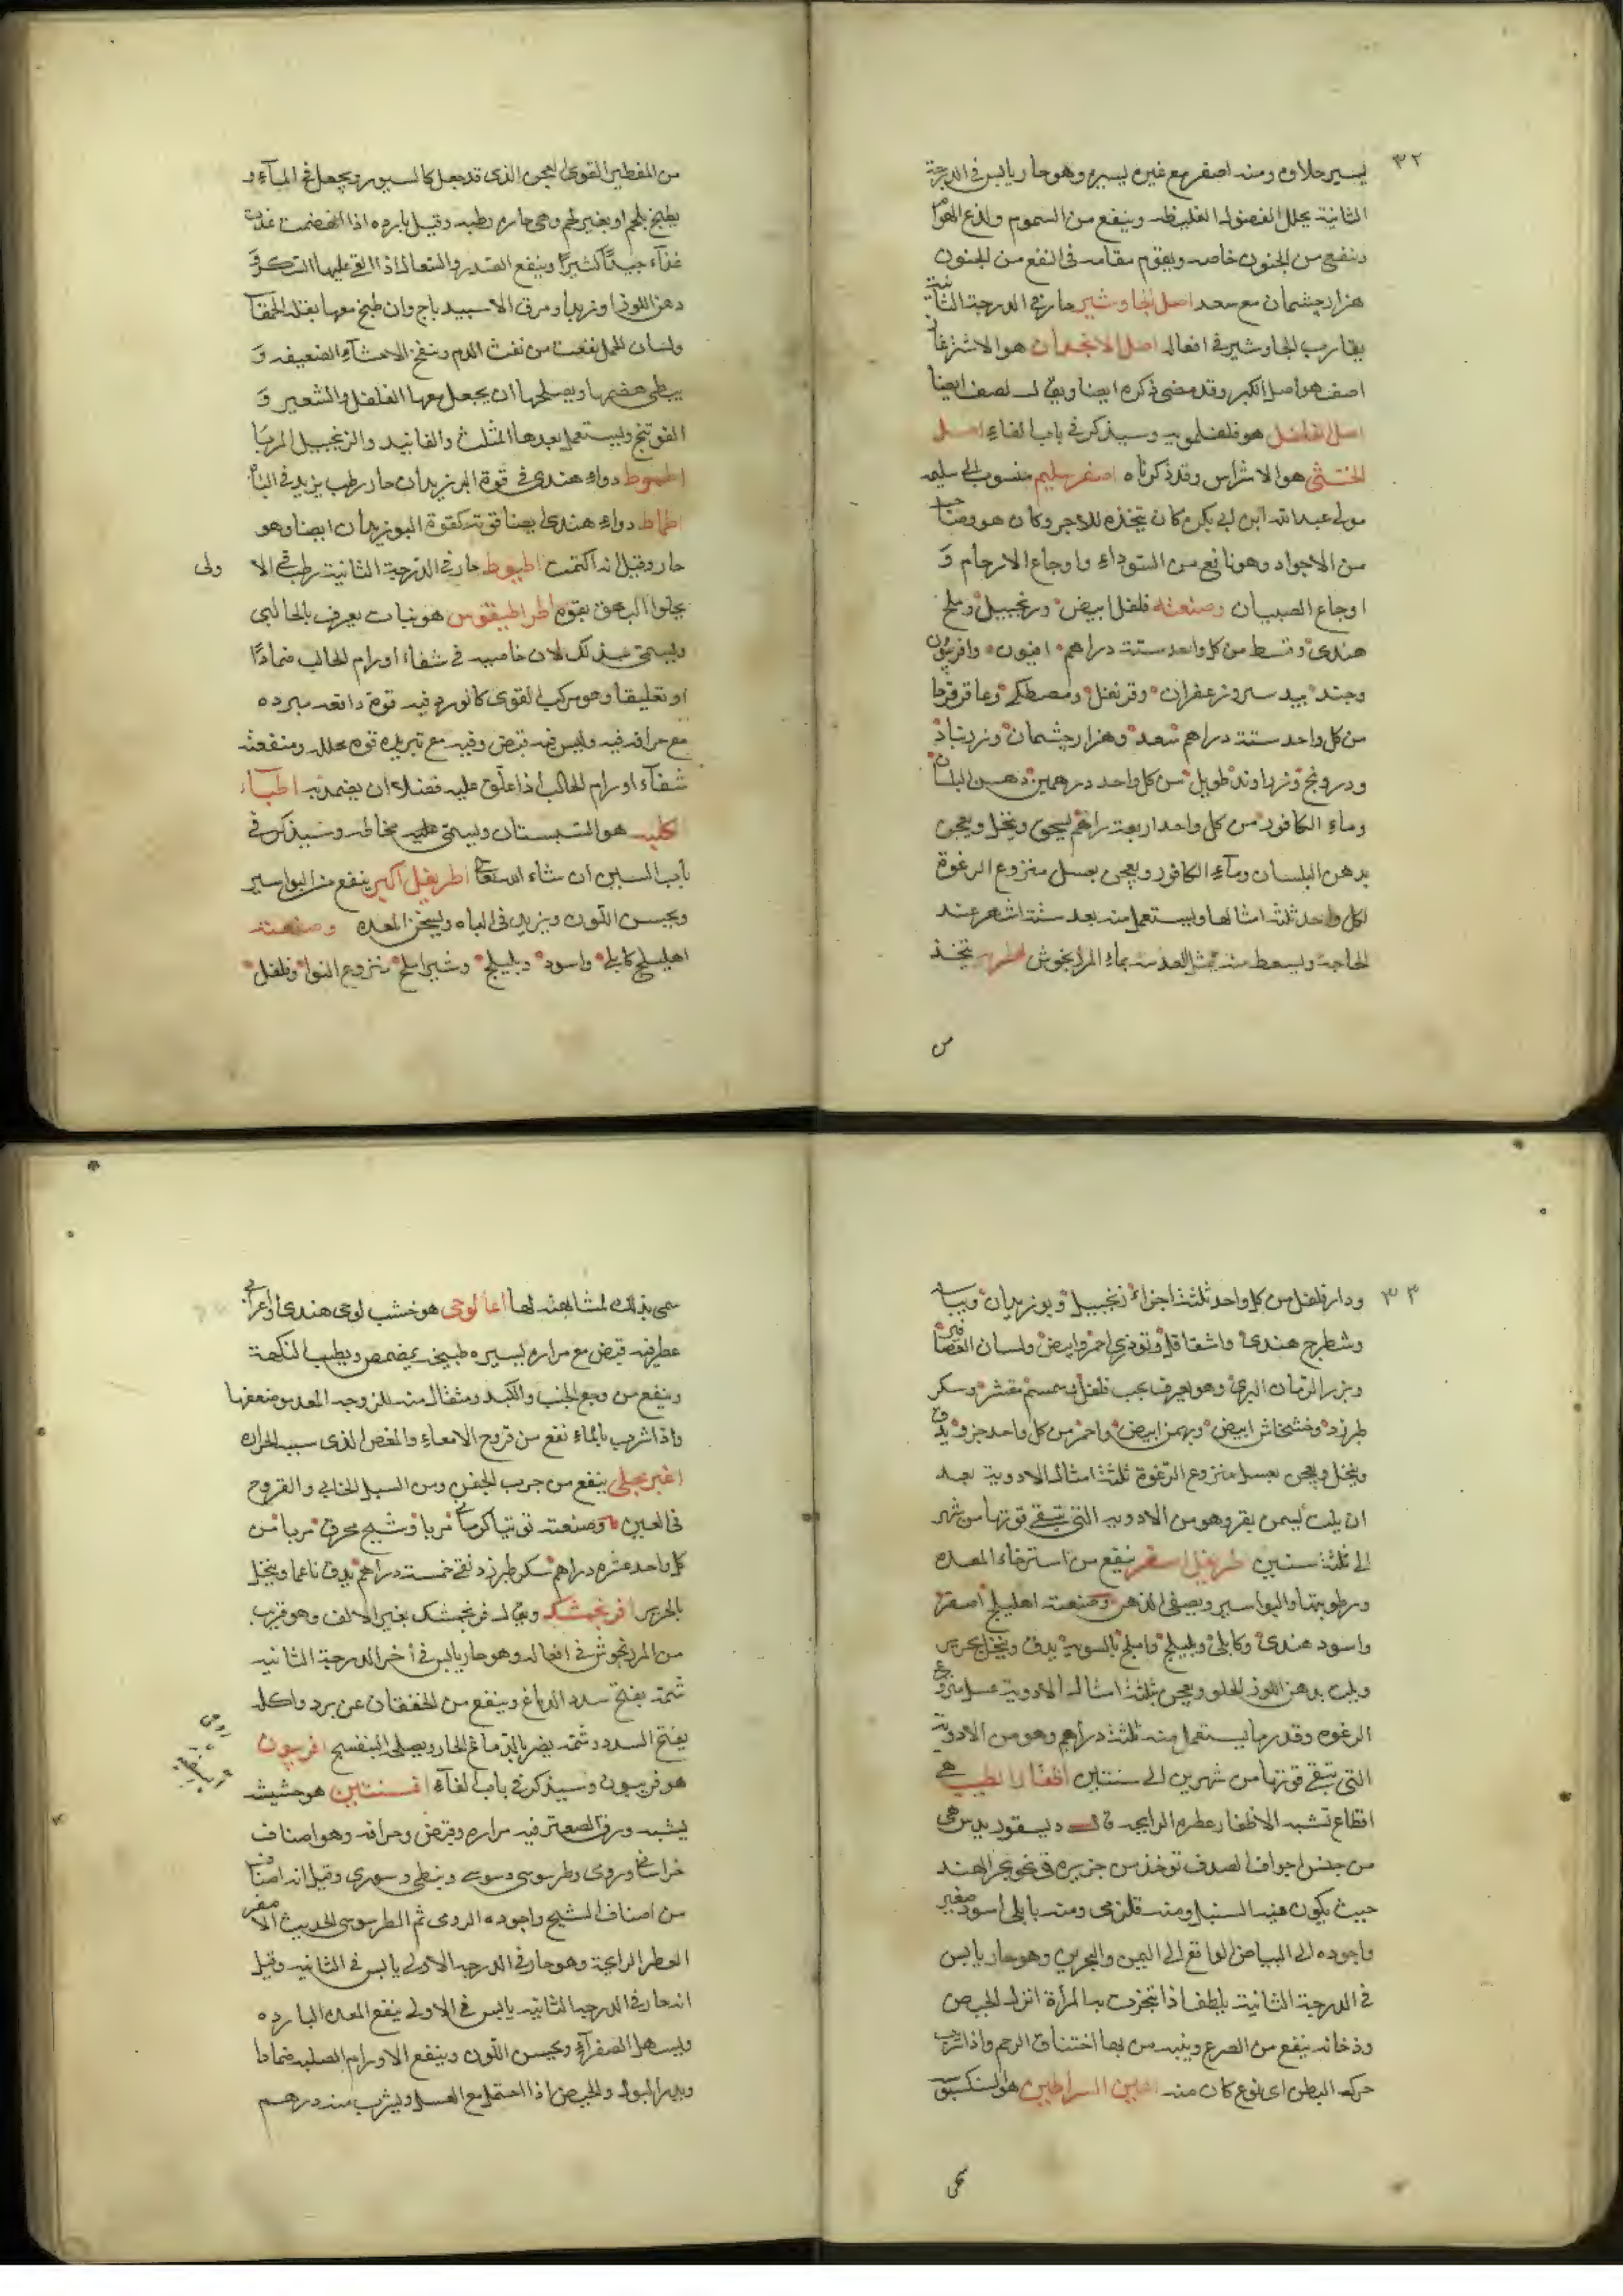 ٣٢
يسير حلاوه ومنه اصفر مع غبره يسيره وهو حار يابس فى الدرجة
الثانية يحلل الفضول الغليظه وينفع من السموم ولدغ الهوام
وينفع من الجنون خاصه ويقوم مقامه فى النفع من الجنون
هزارجشمان مع سعد اصل الجاوشير حار فى الدرجة الثانية
يقارب الجاوشير فى افعاله اصل الانجدان هو الاشترغان
اصف هو اصل الكبر وقد مضى ذكره ايضا ويقال لصف ايضا
اصل الفلفل هو فلفلمويه وسيذكر فى باب الفاء اصل
الخنثى هو الاشراس وقد ذكرناه اصفر سليم منسوب الى سليم
مولى عبد الله ابن ابى بكره كان يتخذه للاجر وكان هو وصاحبه
من الاجواد وهو نافع من السوداء واوجاع الارحام و
اوجاع الصبيان وصنعته فلفل ابيض وزنجبيل وملح
هندى وقسط من كل واحد ستة دراهم افيون وافربيون
وجند بيدستر وزعفران وقرنفل ومصطكى وعاقرقرحا
من كل واحد ستة دراهم سعد وهزارجشمان وزرنباد
ودرونج وزراوند طويل من كل واحد درهمين دهن البلسان
وماء الكافور من كل واحد اربعة دراهم يسحق وينخل ويعجن
بدهن البلسان وماء الكافور ويعجن بعسل منزوع الرغوة
لكل واحد ثلثة امثالها ويستعمل منه بعد ستة اشهر عند
الحاجة ويسعط منه بمثل العدسة بماء المرزنجوش اطريه يتخذ
من
من الفطير القوى العجن الذى قد جعل كالسيور ويجعل فى الماء و
يطبخ بلحم او بغير لحم وهى حاره رطبه وقيل بارده اذا انهضمت غذت
غذاء جيدا كثيرا وينفع الصدر والسعال اذا القى عليها السكر و
دهن اللوز او زبد او مرق الاسبيدباج وان طبخ معها بقلة الحمقا
ولسان الحمل نفعت من نفث الدم وينفخ الاحشاء الضعيفه و
يبطى هضمها ويصلحها ان يجعل معها الفلفل والشعير و
الفوتنج ويستعمل بعدها المثلث والفانيد والزنجبيل المربا
اطموط دواء هندى فى قوة البوزيدان حار رطب يزيد فى الباه
اطماط دواء هندى ايضا قوته كقوة البوزيدان ايضا وهو
حار وقيل انه اكتمت اطيوط حار فى الدرجة الثانية رطب فى الا ولى
يجلوا البهق بقوه اطراطيقوس هو نبات يعرف بالحالبى
ويسمى بذلك لان خاصيه فى شفاء اورام الحالب ضمادا
او تعليقا وهو مركب القوى كالورد فيه قوة دافعه مبرده
مع حرافه فيه وليس فيه قبض وفيه مع تبريده قوه محلله ومنفعته
شفاء اورام الحالب اذا علق عليه فضلا ان يضمد به اطباء
الكلبه هو السبستان ويسمى مخاطه وسيذكر فى
باب السين ان شاء الله تعالى اطريفل اكبر ينفع من البواسير
ويحسن اللون ويزيد فى الباه ويسخن المعده وصنعته
اهليلج كابلى واسود وبليلج وشير املج منزوع النوا وفلفل
٣٣
ودار فلفل من كل واحد ثلثة اجزاء زنجبيل وبوزيدان وبسباسه
وشطرج هندى واشقاقل وتوذرى احمر وابيض ولسان العصافير
وبزر الرمان البرى وهو يعرف بحب فلفل وسمسم مقشر وسكر
طبرزد وخشخاش ابيض وبهمن ابيض واحمر من كل واحد جزو يدق
وينخل ويعجن بعسل منزوع الرغوة ثلثة امثال الادوية بعد
ان يلت بسمن بقر وهو من الادويه التى تبقى قوتها من شهر
الى ثلثة سنين اطريفل اصغر ينفع من استرخاء المعده
ورطوبتها والبواسير ويصفى الذهن وصنعته اهليلج اصفر
واسود هندى وكابلى وبليلج واملج بالسويه يدق وينخل بحرير
ويلت بدهن اللوز الحلو ويعجن بثلثة امثال الادوية عسل منزوع
الرغوه وقدر ما يستعمل منه ثلثة دراهم وهو من الادوية
التى تبقى قوتها من شهرين الى سنتين اظفار الطيب هى
اقطاع تشبه الاظفار عطره الرايحه قال ديسقوريدس هى
من جنس اجواف الصدف توخذ من جزيره فى نحو بحر الهند
حيث يكون فيه السنبل ومنه قلزمى ومنه بابلى اسود صغير
واجوده الى البياض الواقع الى اليمن والبحرين وهو حار يابس
فى الدرجة الثانية يلطف اذا تبخرت به المرأة انزل الحيض
ودخانه ينفع من الصرع وينبه من بها اختناق الرحم واذا شرب
حرك البطن اى نوع كان منه اعين السراطين هو السنكسبوه
سمى
سمى بذلك لمشابهته لها اغالوجى هو خشب لوجى هندى واعرابى
عطر فيه قبض مع مراره يسيره طبيخه يمضمض ويطيب النكهة
وينفع من وجع الجنب والكبد ومثقال منه للزوجه المعده وضعفها
واذا شرب بالماء نفع من قروح الامعاء والمغص الذى سببه الحراره
اغبر نجلى ينفع من جرب الجفن ومن السبل الخافى والقروح
فى العين وصنعته توتيا كرمانى مربا وشيح محرق مربا من
كل واحد عشره دراهم سكر طبرزد نقى خمسة دراهم يدق ناعما وينخل
بالحرير افرنجمشك ويقال فرنجمشك بغير الالف وهو قريب
من المرزنجوش فى افعاله وهو حار يابس فى أخر الدرجة الثانيه
شمه يفتح سدد الدماغ وينفع من الخفقان عن برد واكله
يفتح السدد وشمه يضر بالدماغ الحار ويصلحه البنفسج افربيون
هو فربيون وسيذكر فى باب الفاء افسنتين هو حشيشه
يشبه ورق الصعتر فيه مراره وقبض وحرافه وهو اصناف
خراسانى ورومى وطرسوسى وسوسى ونبطى وسورى وقيل انه اصناف
من اصناف الشيح واجوده الرومى ثم الطرسوسى الحديث الاصفر
العطر الرايحة وهو حار فى الدرجه الاولى يابس فى الثانيه وقيل
انه حار فى الدرجه الثانيه يابس فى الاولى ينفع المعده البارده
ويسهل الصفراء ويحسن اللون وينفع الاورام الصلبه ضمادا
ويدر البول والحيض اذا احتمل مع العسل ويشرب منه درهم